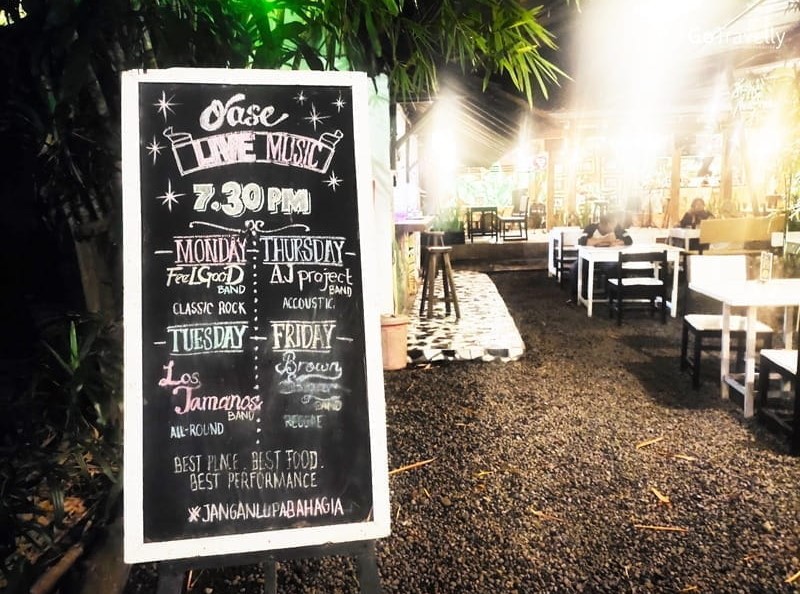 Oase
LIVE MUSIC
7.30 PM
MONDAY
FeeLGooD
BAND
CLASSIC ROCK
THURSDAY
AJ project
BAND
ACCOUSTIC.
TUESDAY
Los
Jamanos
BAND
ALL-ROUND
FRIDAY
Brown
BAND
REGGAE
BEST PLACE. BEST FOOD.
BEST PERFORMANCE
#JANGANLUPABAHAGIA
GoTravelly